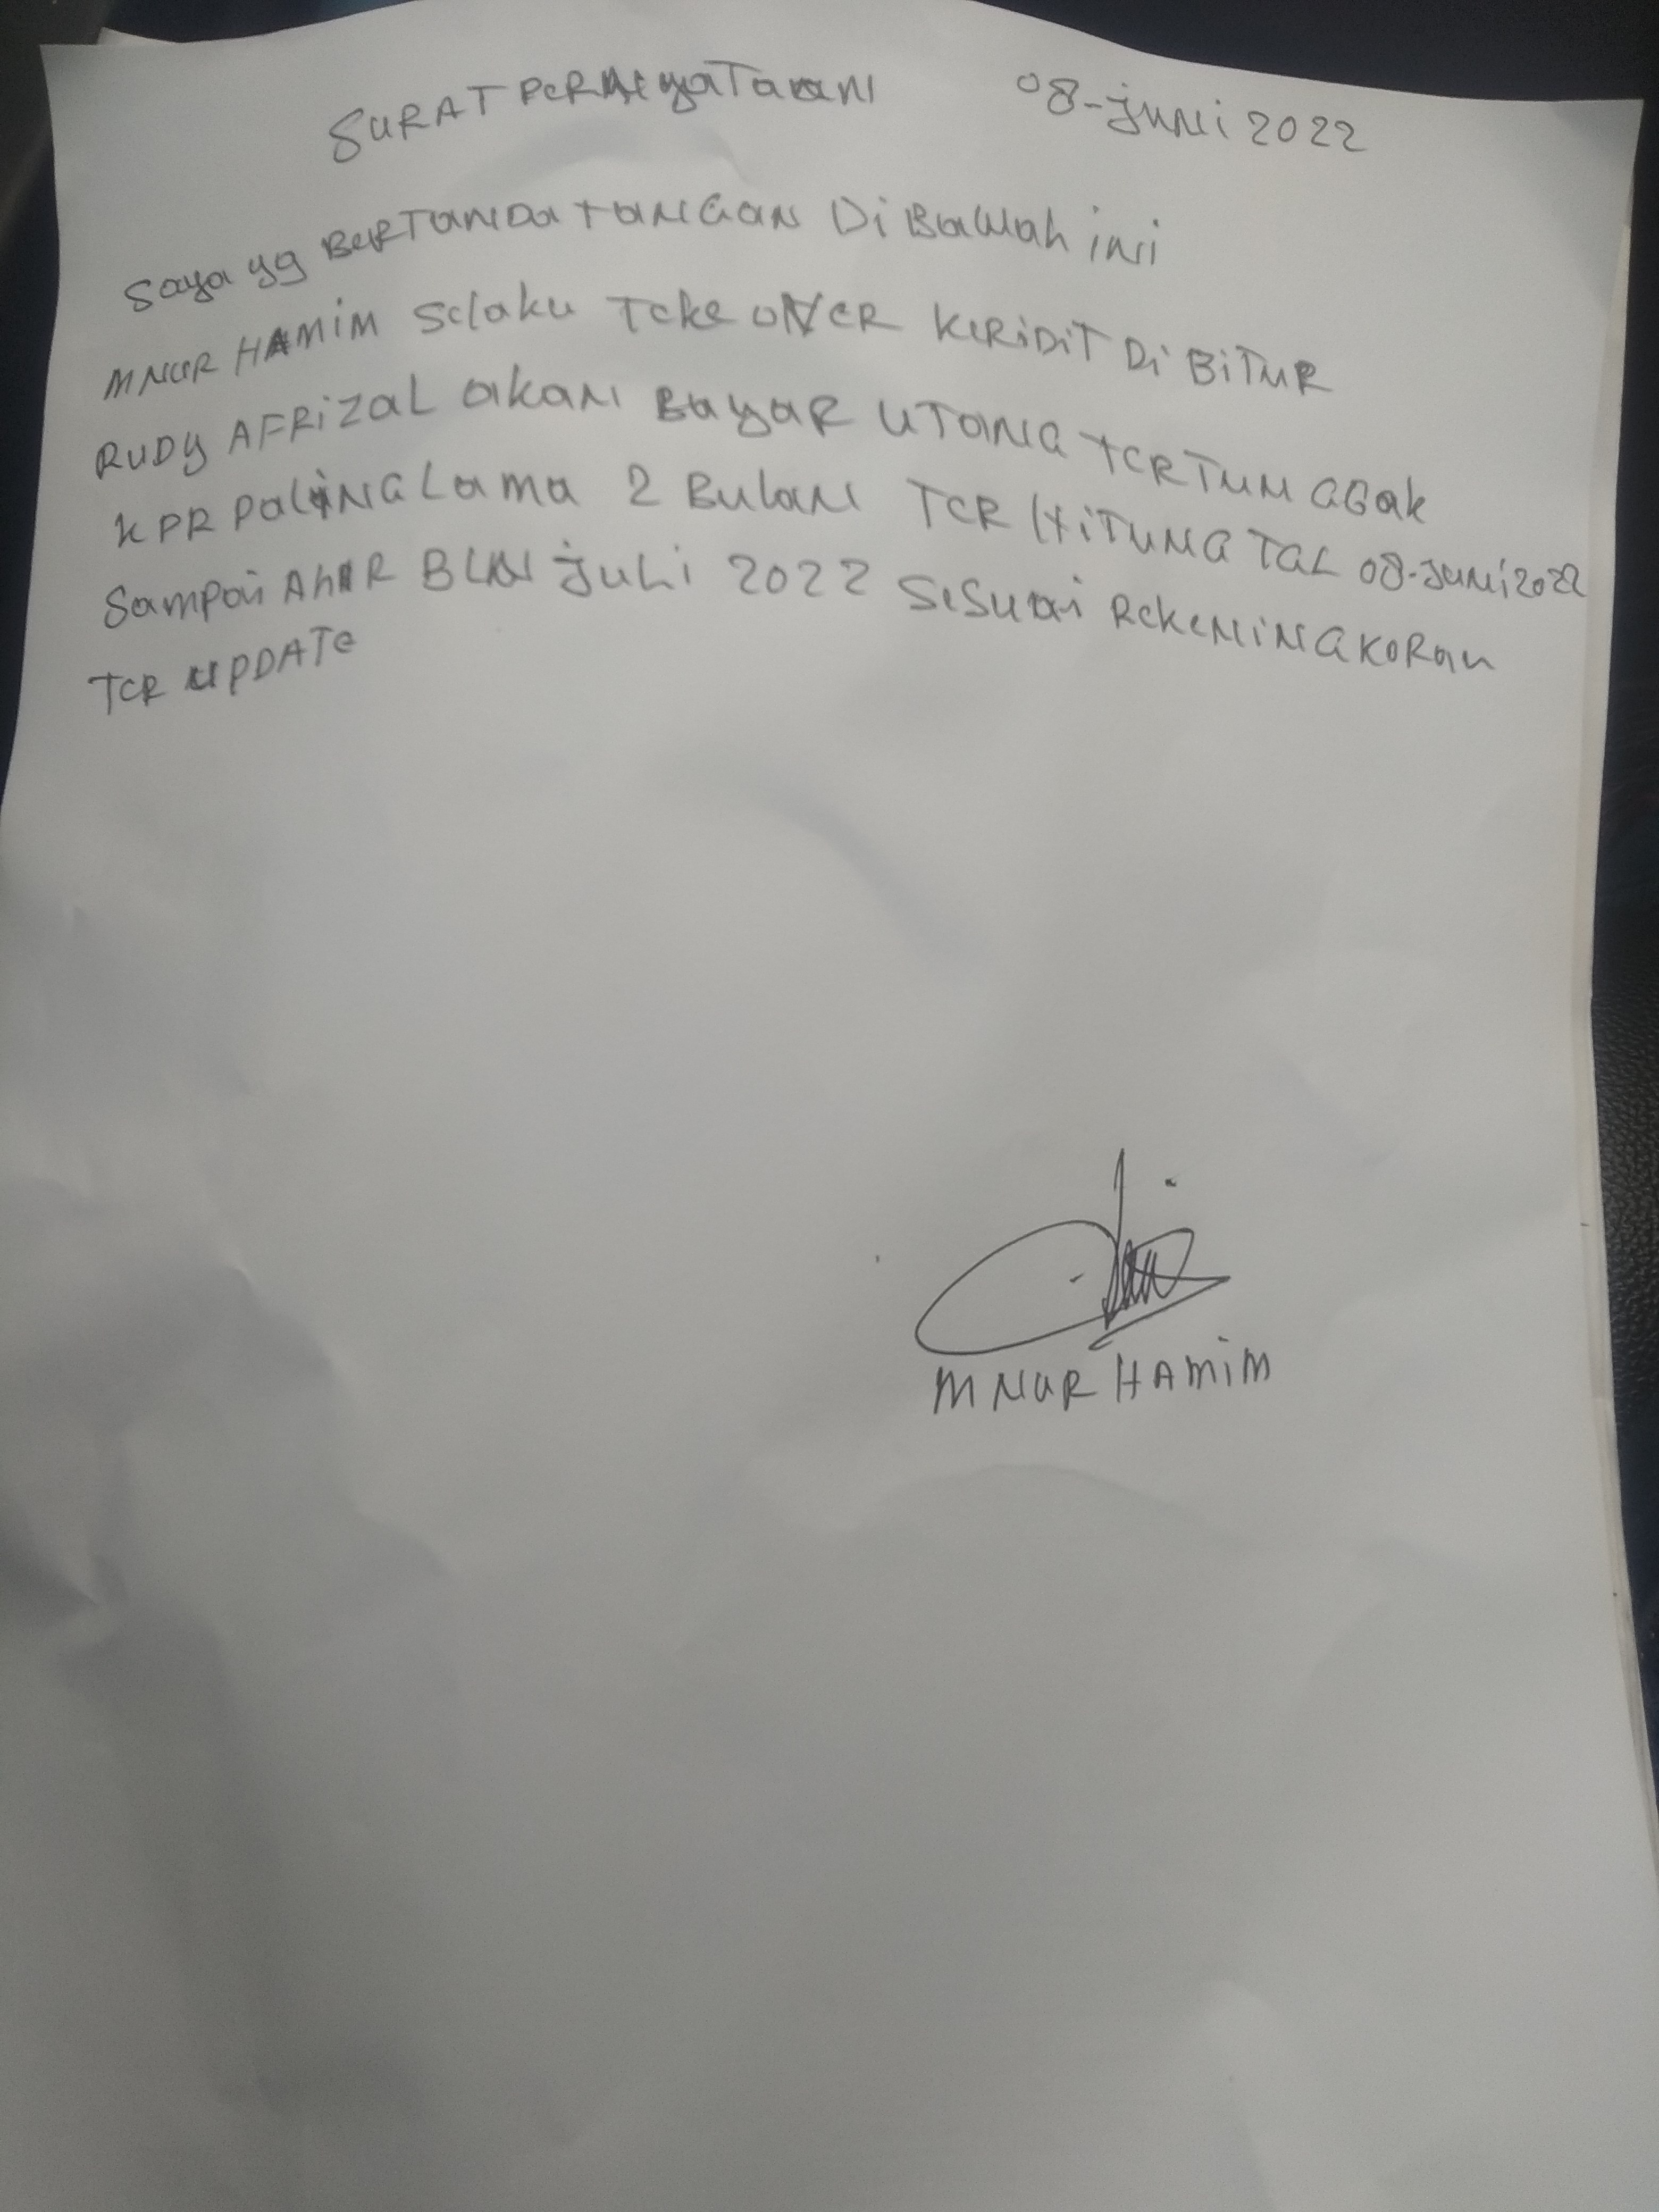 SURAT PERNEYATAAN 08-juni 2022
saya yg BERTANDA TANGAN Di BaWah ini
M NUR HAMIM Selaku Teke OVER KERiDiT Di BiTUR
RUDY AFRiZAL akan BayaR UTANG TERTUNGGak
KPR PaliNG Lama 2 Bulan TER HiTUNG TGL 08-juni 2022
Sampai AhiR BLN juli 2022 SeSuai RekeNiNG KORan
TER UPDATE
M NUR HAMiM